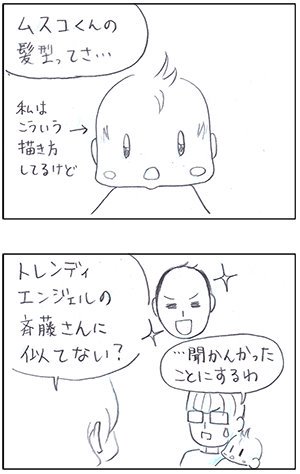 ムスコくんの
髪型ってさ…
私は
こういう
描き方
してるけど
トレンディ
エンジェルの
斉藤さんに
似てない?
…聞かんかった
ことにするわ